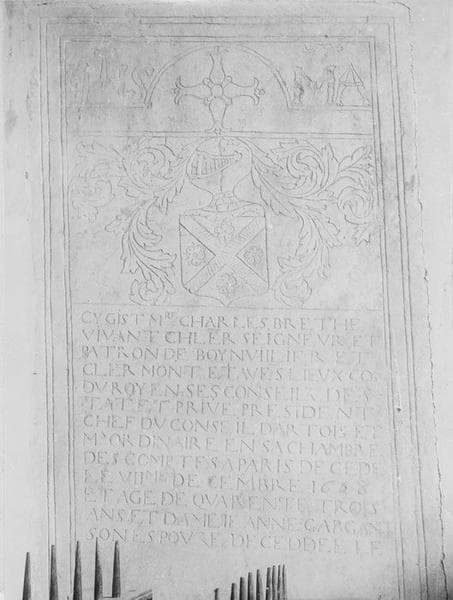 IHS MA
CY GIST MRE CHARLES BRETHE
VIVANT CHLER SEIGNEUR ET
PATRON DE BOYNVILLIER ET
CLERMONT ET AVES LIEUX CO
DU ROY EN SES CONSEILX DES
TAT ET PRIVE PRESIDENT
CHEF DU CONSEIL DARTOIS ET
MRE ORDINAIRE EN SA CHAMBRE
DES COMPTES A PARIS DECEDE
LE VIII DE CEMBRE
ET AGE DE QUARENTE TROIS
ANS ET DAME JEANNE GARGAN
SON ESPOUZE DECEDDEE LE